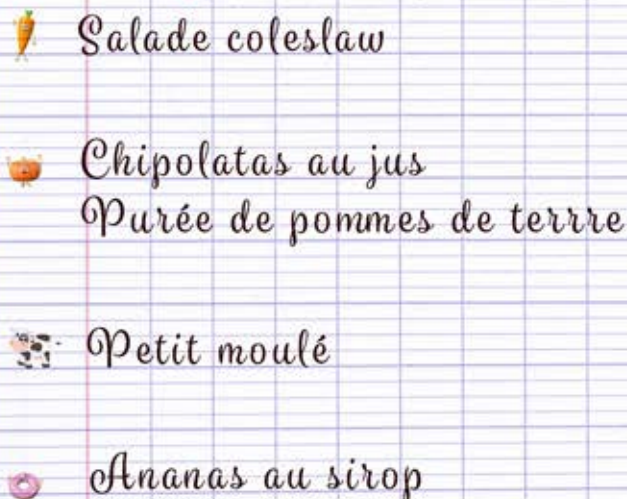 Salade coleslaw
Chipolatas au jus
Purée de pommes de terrre
Petit moulé
Ananas au sirop